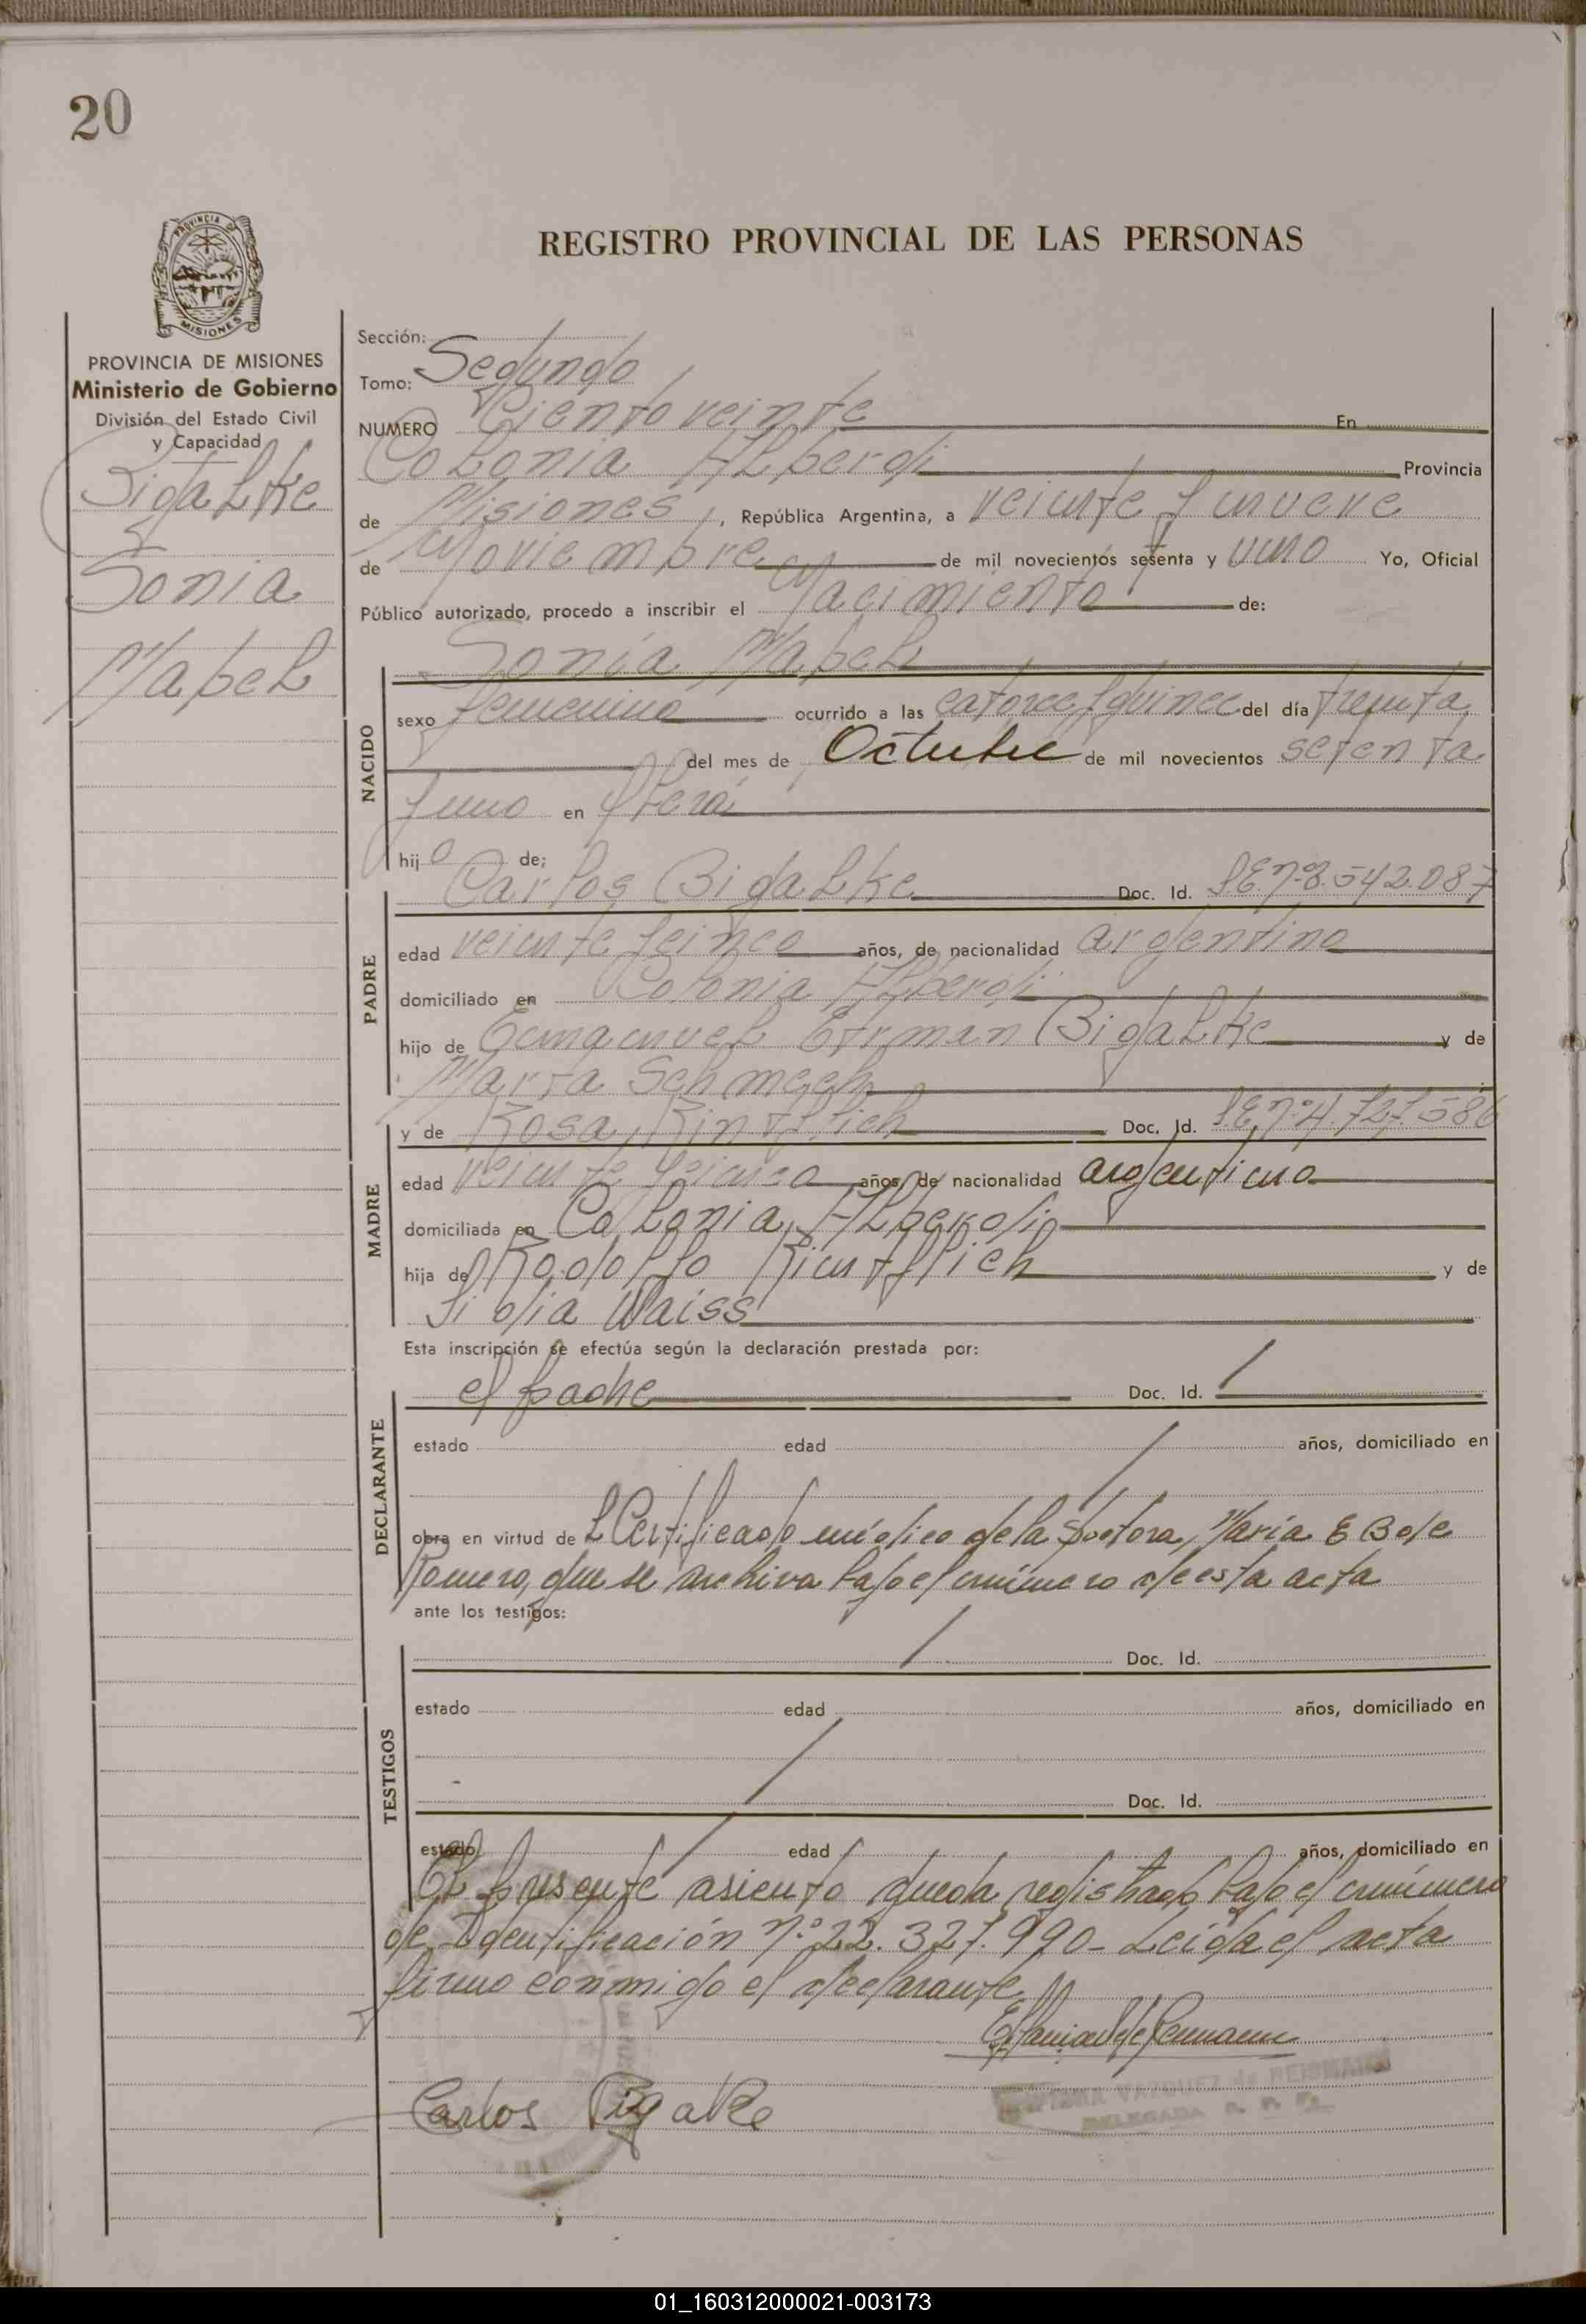 20
PROVINCIA DE
MISIONES
REGISTRO PROVINCIAL DE LAS PERSONAS
PROVINCIA DE MISIONES
Ministerio de Gobierno
División del Estado Civil
y Capacidad
Bigalke
Sonia
Mabel
Sección:
Tomo: Segundo
NUMERO Ciento veinte En
Colonia Alberdi Provincia
de Misiones, República Argentina, a veinte y nueve
de Noviembre de mil novecientos setenta y uno Yo, Oficial
Público autorizado, procedo a inscribir el Nacimiento de:
Sonia Mabel
NACIDO
sexo femenino ocurrido a las catorce y quince del día treinta
del mes de Octubre de mil novecientos setenta
y uno en
hij a de:
PADRE
Carlos Bigalke Doc. Id. L.E. nº 8.542.087
edad veinte y cinco años, de nacionalidad argentino
domiciliado en Colonia Alberdi
hijo de Emanuel Bigalke y de
Marta
MADRE
y de Rosa Doc. Id. nº 4.727.586
edad veinte y cinco años, de nacionalidad argentina
domiciliada en Colonia Alberdi
hija de Rodolfo y de
Lidia Waiss
Esta inscripción se efectúa según la declaración prestada por:
DECLARANTE
el padre Doc. Id.
estado edad años, domiciliado en
obra en virtud de L Certificado médico de la Doctora, María E
Romero, que se archiva bajo el número de esta acta
ante los testigos:
TESTIGOS
Doc. Id.
estado edad años, domiciliado en
Doc. Id.
estado edad años, domiciliado en
El presente asiento queda registrado bajo el número
de Identificación nº 22.327.990- Leída el acta
firmo conmigo el declarante
VAZQUEZ de REISMANN
DELEGADA R. P. P.
Carlos Bigalke
01_160312000021-003173